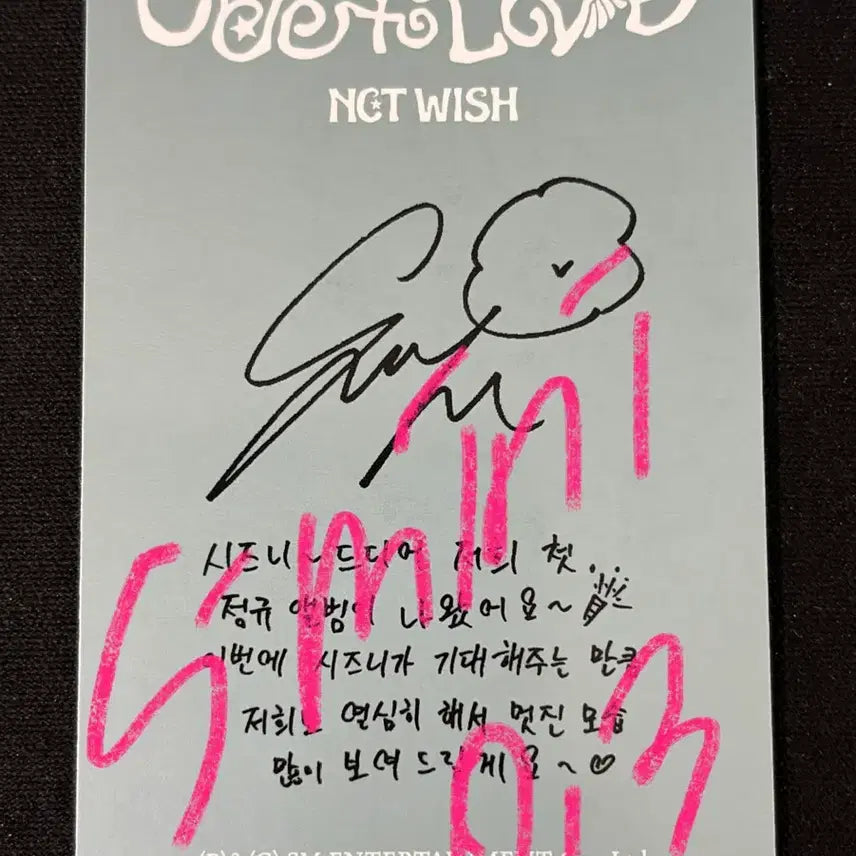 Ode to Love
NCT WISH
시즈니~드디어 저희 첫
정규 앨범이 나왔어요~
이번에 시즈니가 기대해주는 만큼
저희도 열심히 해서 멋진 모습
많이 보여 드릴게요~♡